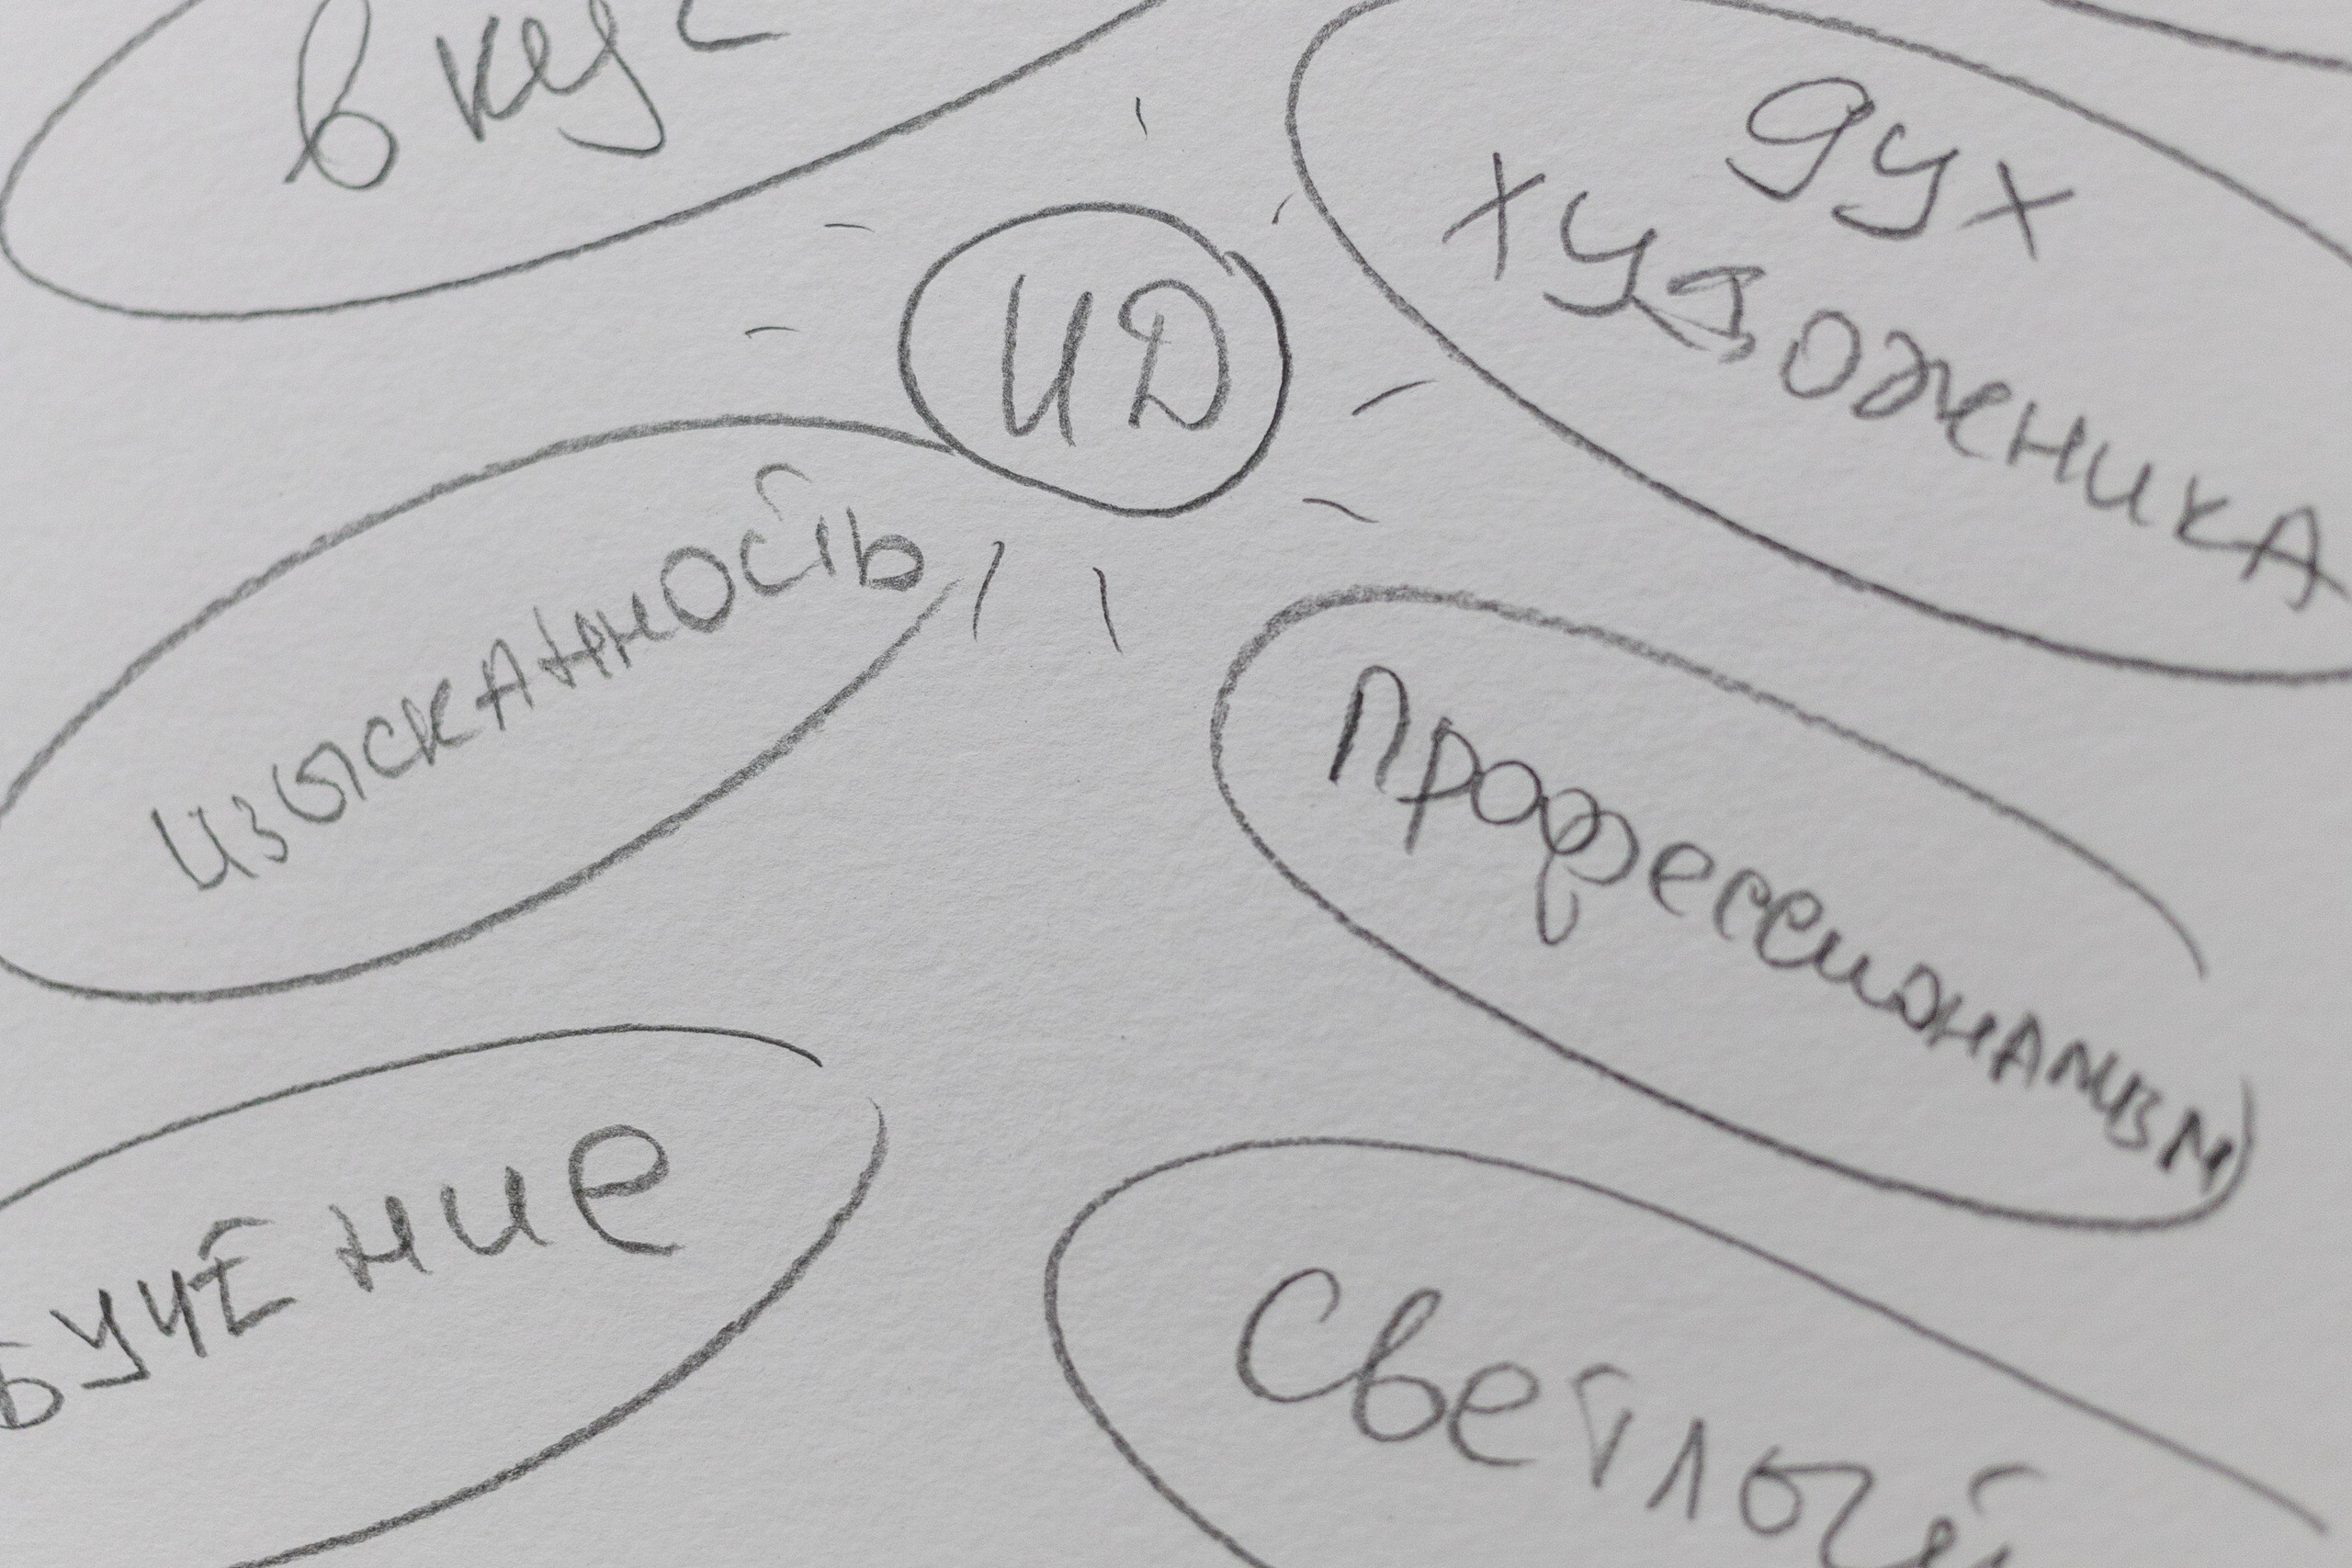 вкус
дух
художника
ИД
изысканность
профессионализм
бучение
Светлый